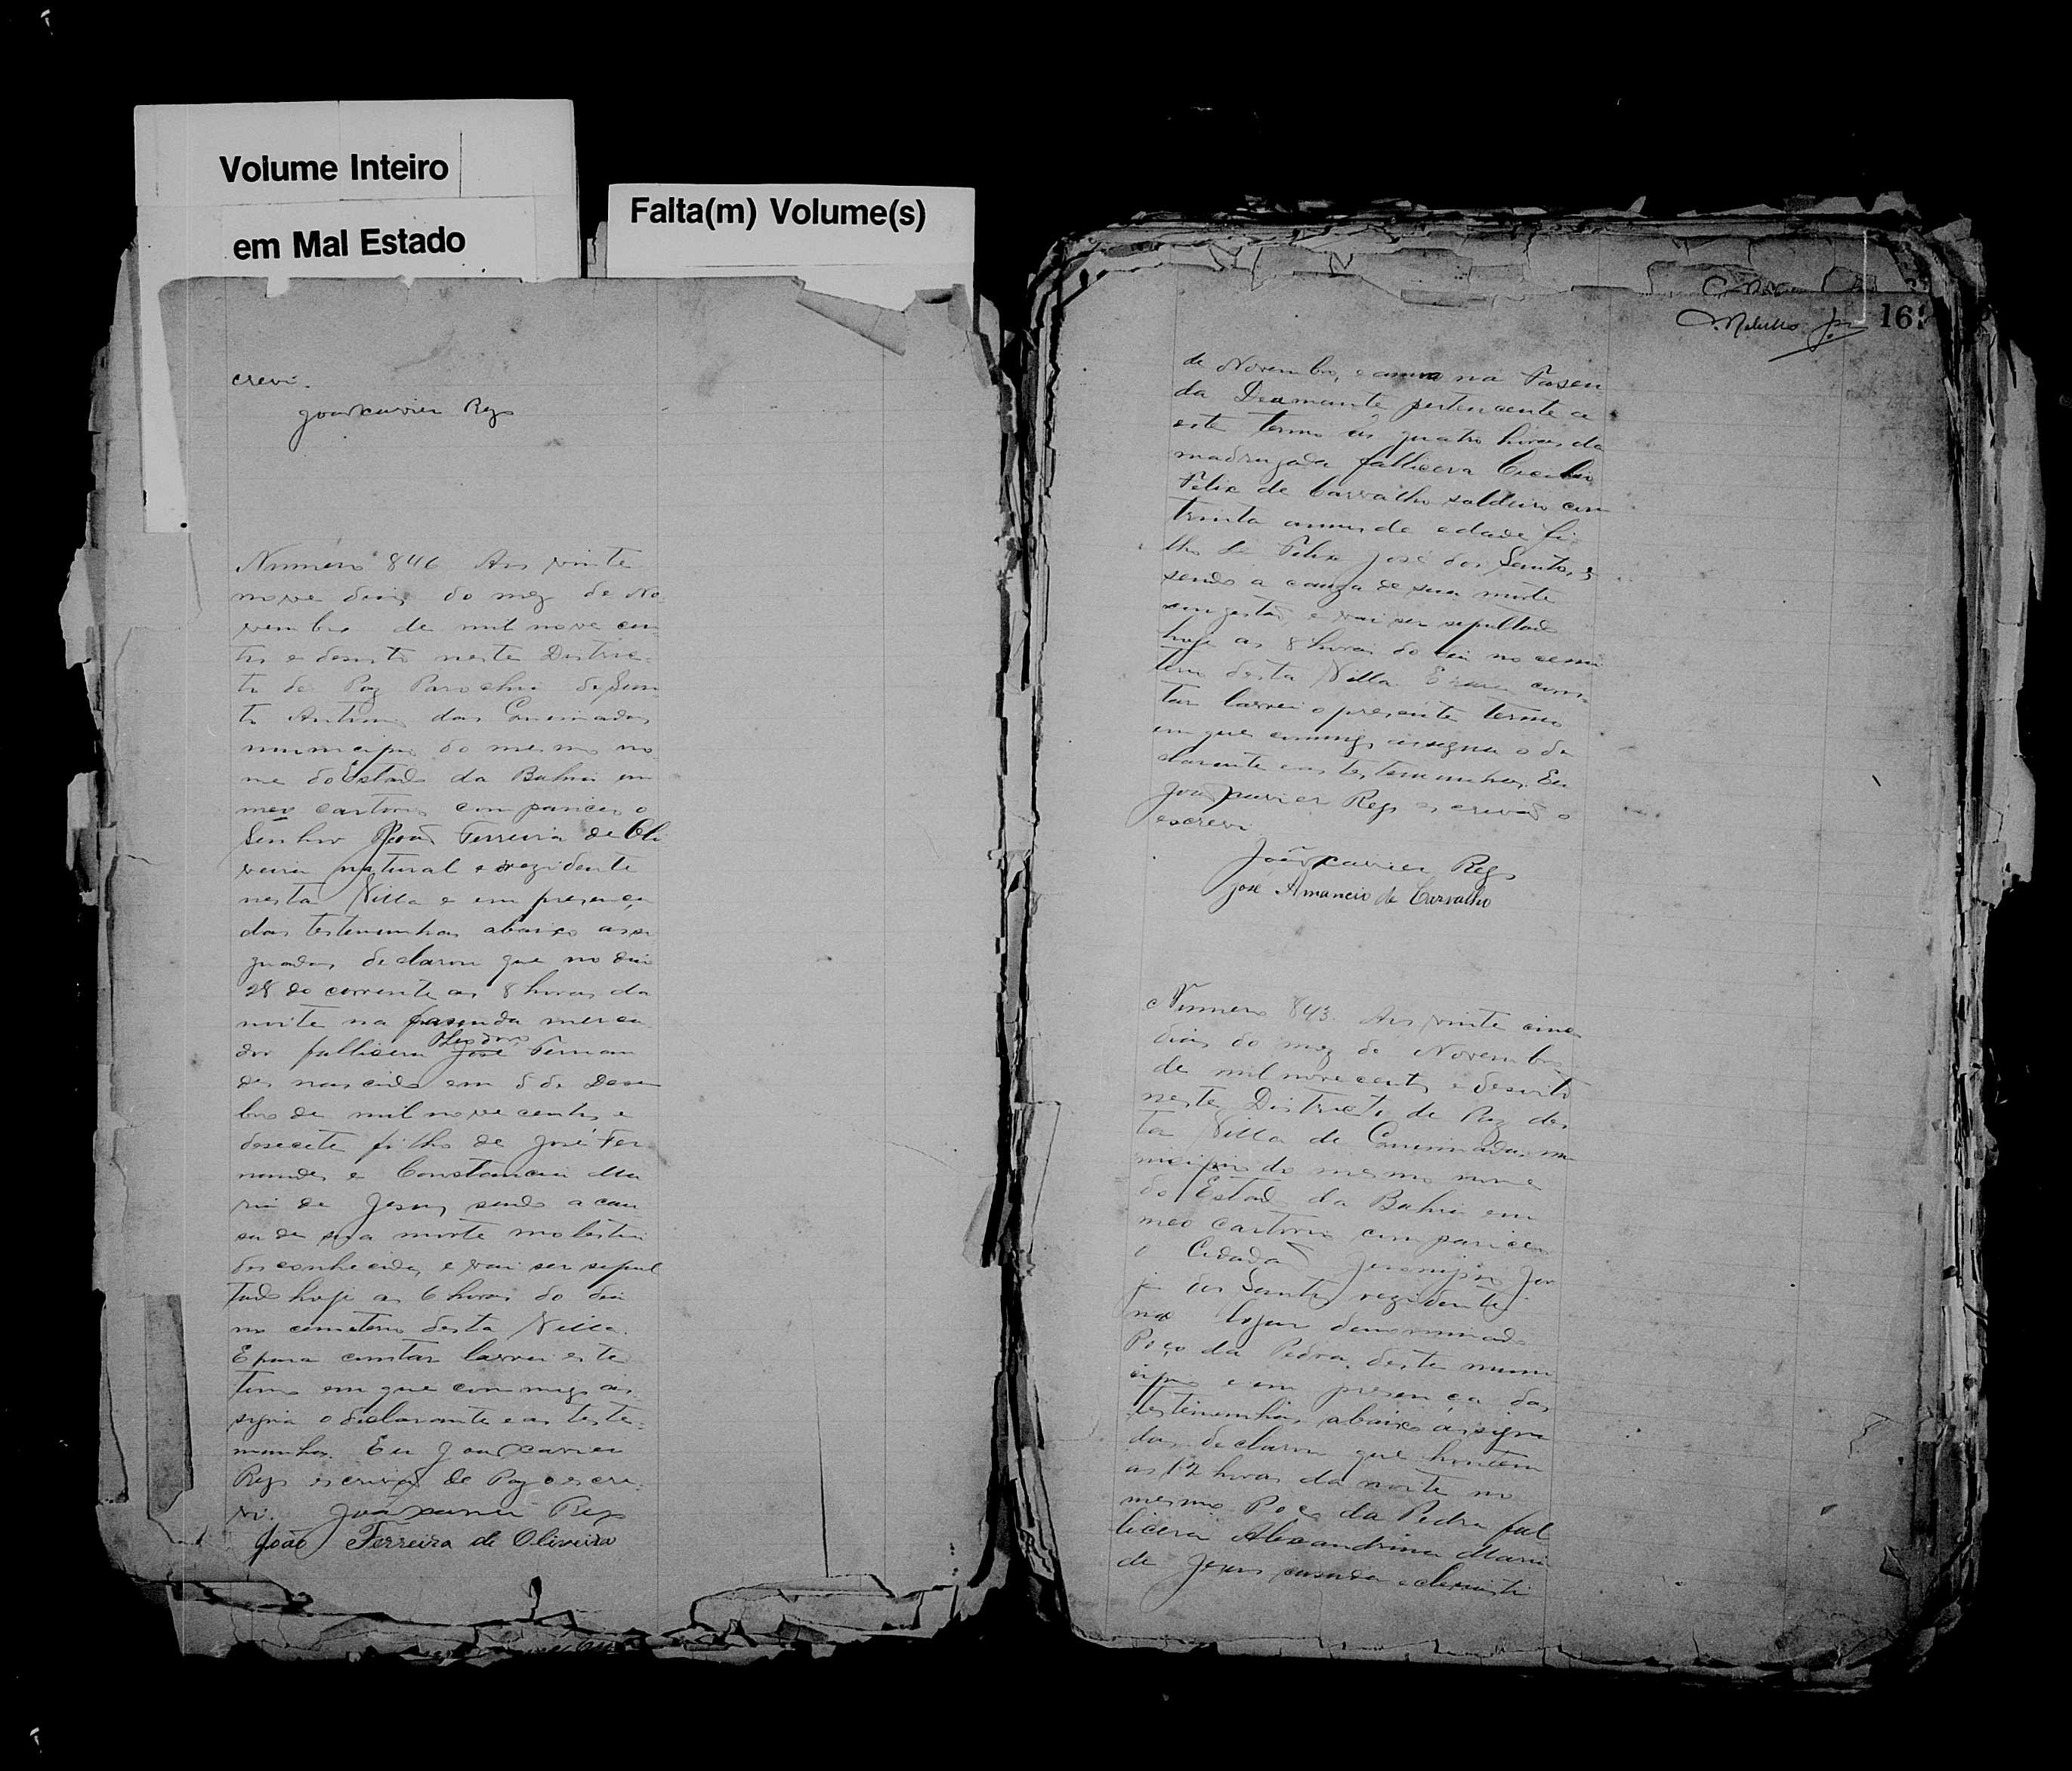 Volume Inteiro
em Mal Estado
Falta(m) Volume(s)
crevi.
João Xavier Reys
Numero 846 Aos vinte
nove dias do mez de No-
vembro de mil nove cen-
tos e desoito neste Distric-
to de Paz Parochia de San-
to Antonio das Queimadas
municipio do mesmo no-
me do Estado da Bahia em
meo cartorio compareceo o
Senhor João Ferreira de Oli
veira natural e rezidente
nesta Villa e em presença
das testemunhas abaixo assi
gnadas, declarou que no dia
28 do corrente as 8 horas da
noite na fasenda merca
dor fallicera José Fernan
des nascido em 8 de Desem
bro de mil nove centos e
desecete filho de José Fer
nandes e Constancia Ma
ria de Jesus, sendo a cau
sa de sua morte molestia
desconhecida, e vai ser sepul
tado hoje as 6 horas do dia
no cemeterio desta Villa.
E para constar lavrei este
termo em que commigo as
signa o declarante e as teste-
munhas. Eu João Xavier
Reys escrivão de Paz o escre-
vi. João Xavier Reys
João Ferreira de Oliveira
16
de Novembro, e anno na Fasen
da Diamante pertencente a
este termo ás quatro horas da
madrugada fallicera
Felix de Carvalho solteiro com
trinta annos de edade fi-
lho de Felix José dos Santos,
sendo a causa de sua morte
congestão, e vai ser sepultado
hoje as 8 horas do dia no cemi
terio desta Villa. E para cons-
tar lavrei o presente termo
em que commigo assigna o de
clarante e as testemunhas. Eu
João Xavier Reys escrivão o
escrevi
João Xavier Reys
José Amancio de Carvalho
Numero 843. Aos vinte cinco
dias do mez de Novembro
de mil nove centos e desoito
neste Districto de Paz des
ta Villa de Queimadas, mu
nicipio do mesmo nome
do Estado da Bahia em
meo cartorio compareceo
o Cidadão Jeronymo
dos Santos rezidente
no lugar denominado
Poço da Pedra, deste muni
cipio e em presença das
testemunhas abaixo assigna
das declarou que hontem
as 12 horas da noite no
mesmo Poço da Pedra fal
licera Alexandrina Maria
de Jesus, casada